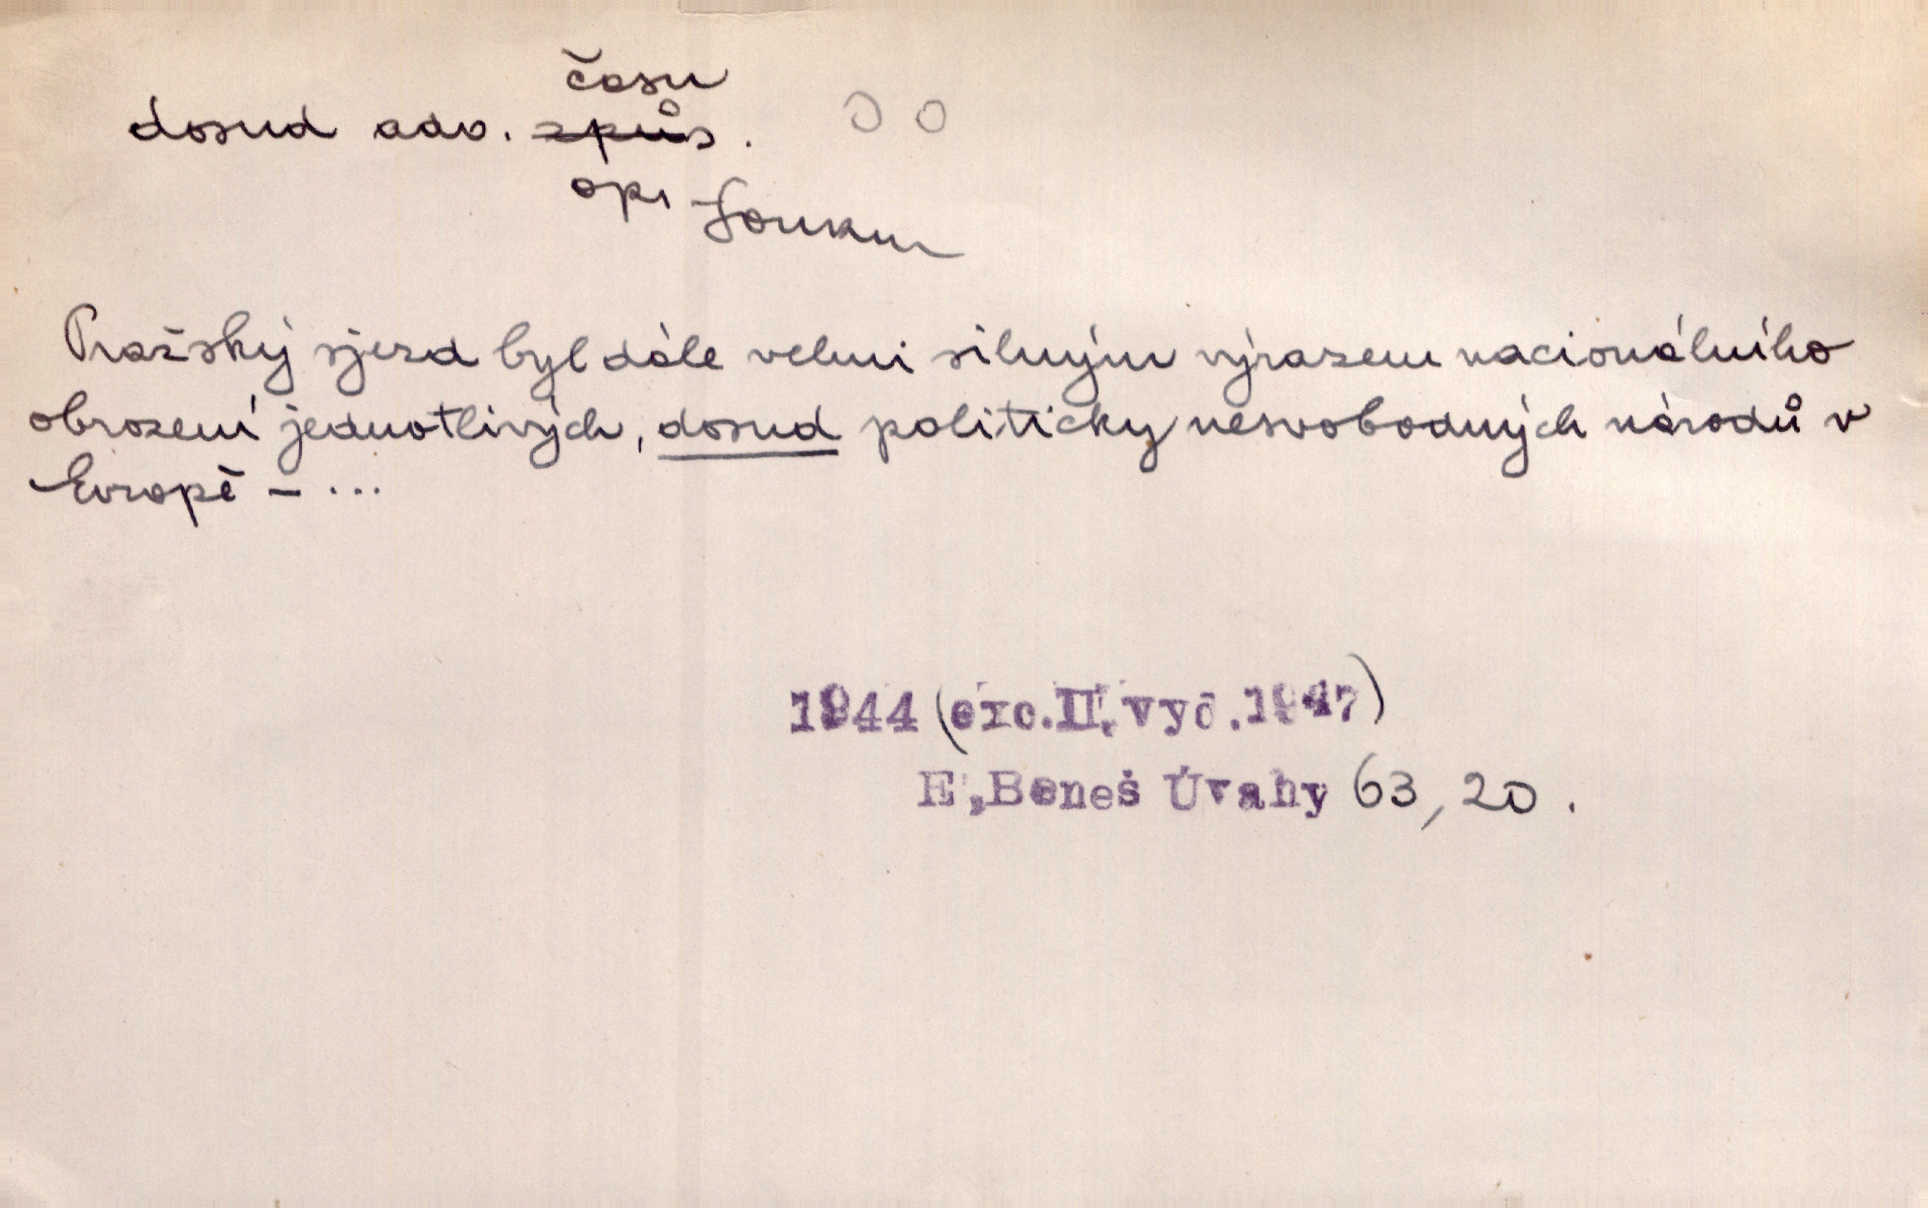 času
dosud adv. způs.
opr
Pražský sjezd byl dále velmi silným výrazem nacionálního
obrození jednotlivých, dosud politicky nesvobodných národů v
Evropě – ...
1944 (exc. II. vyd. 1947)
E. Beneš Úvahy 63, 20.